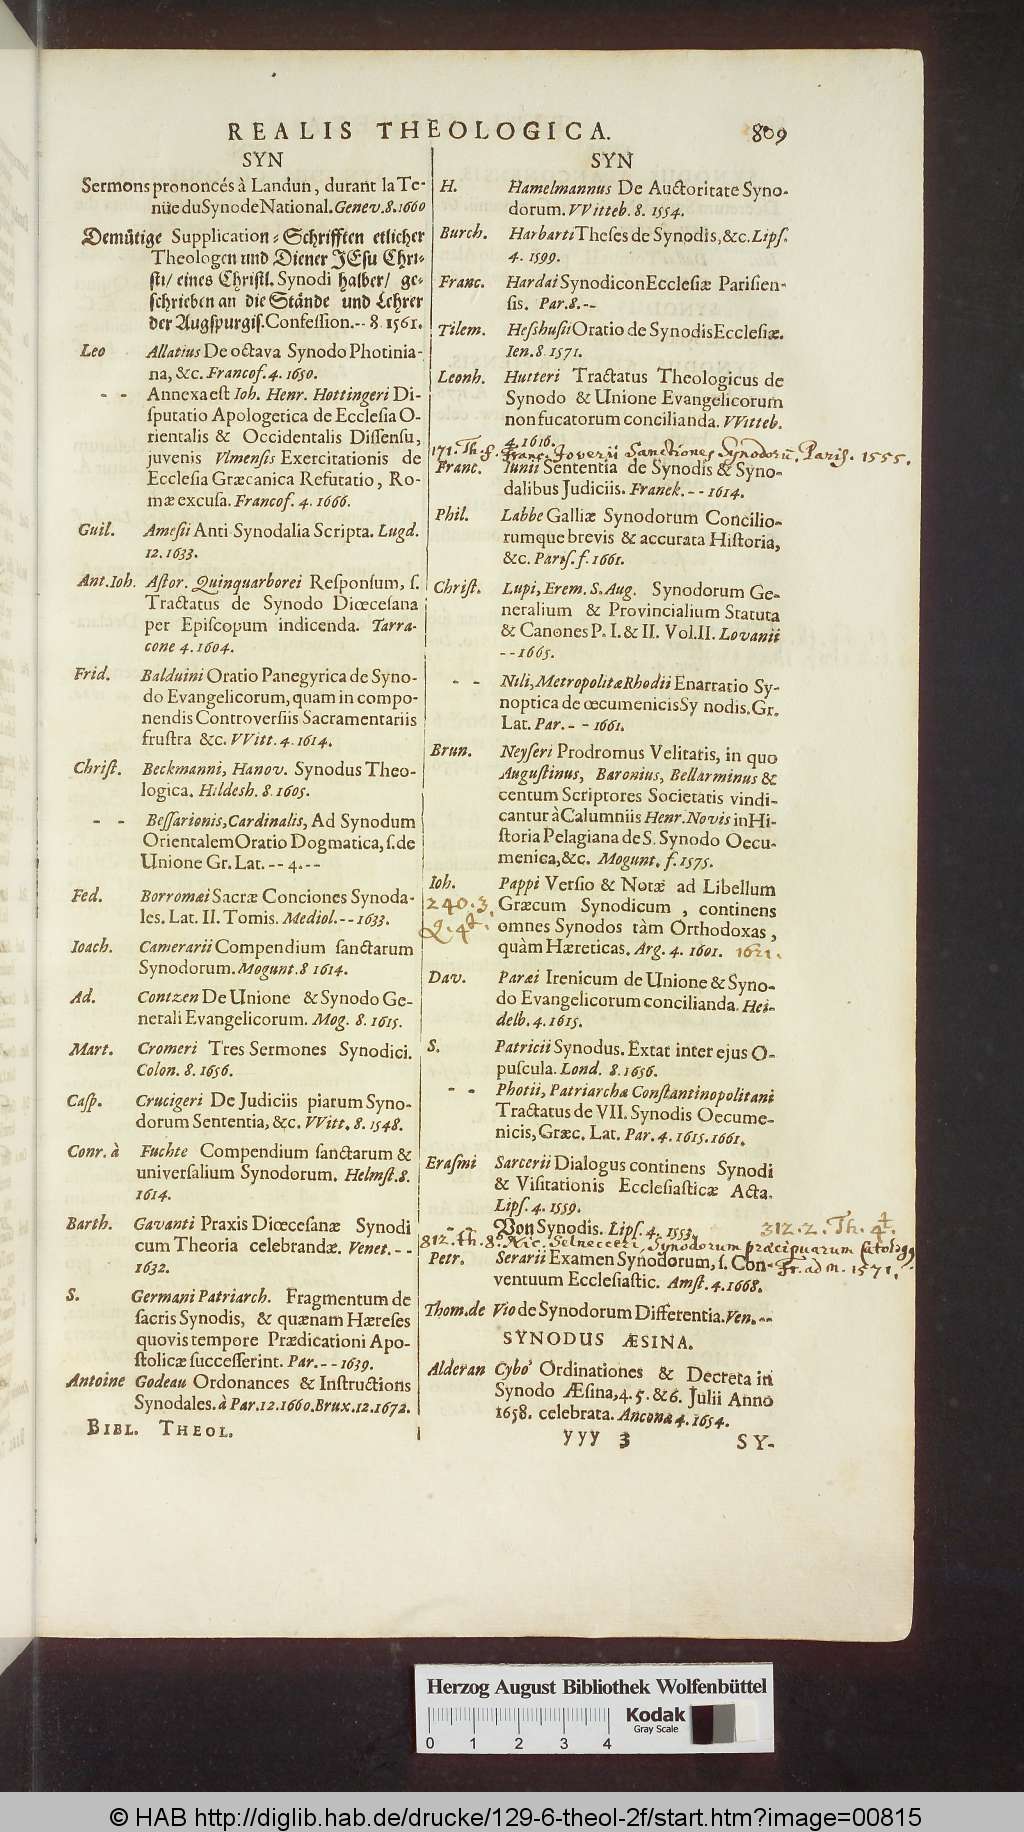 REALIS THEOLOGICA. 809
SYN
Sermons prononcés à Landun, durant la Te-
nüe du Synode National. Genev. 8. 1660
Demütige Supplication-Schrifften etlicher
Theologen und Diener JEsu Chri-
sti/ eines Christl. Synodi halber/ ge-
schrieben an die Stände und Lehrer
der Augspurgis. Confession. -- 8. 1561.
Leo Allatius De octava Synodo Photinia-
na, &c. Francof. 4. 1650.
- - Annexa est Ioh. Henr. Hottingeri Di-
sputatio Apologetica de Ecclesia O-
rientalis & Occidentalis Dissensu,
juvenis Vlmensis Exercitationis de
Ecclesia Græcanica Refutatio, Ro-
mæ excusa. Francof. 4. 1666.
Guil. Amesii Anti-Synodalia Scripta. Lugd.
12. 1633.
Ant. Ioh. Astor. Quinquarborei Responsum, s.
Tractatus de Synodo Diœcesana
per Episcopum indicenda. Tarra-
cone 4. 1604.
Frid. Balduini Oratio Panegyrica de Syno-
do Evangelicorum, quam in compo-
nendis Controversiis Sacramentariis
frustra &c. VVitt. 4. 1614.
Christ. Beckmanni, Hanov. Synodus Theo-
logica. Hildesh. 8. 1605.
- - Bessarionis, Cardinalis, Ad Synodum
Orientalem Oratio Dogmatica, s. de
Unione Gr. Lat. -- 4. --
Fed. Borromæi Sacræ Conciones Synoda-
les. Lat. II. Tomis. Mediol. -- 1633.
Ioach. Camerarii Compendium sanctarum
Synodorum. Mogunt. 8 1614.
Ad. Contzen De Unione & Synodo Ge-
nerali Evangelicorum. Mog. 8. 1615.
Mart. Cromeri Tres Sermones Synodici.
Colon. 8. 1656.
Casp. Crucigeri De Judiciis piarum Syno-
dorum Sententia, &c. VVitt. 8. 1548.
Conr. à Fuchte Compendium sanctarum &
universalium Synodorum. Helmst. 8.
1614.
Barth. Gavanti Praxis Diœcesanæ Synodi
cum Theoria celebrandæ. Venet. --
1632.
S. Germani Patriarch. Fragmentum de
sacris Synodis, & quænam Hæreses
quovis tempore Prædicationi Apo-
stolicæ successerint. Par. -- 1639.
Antoine Godeau Ordonances & Instructions
Synodales. à Par. 12. 1660. Brux. 12. 1672.
BIBL. THEOL.
SYN
H. Hamelmannus De Auctoritate Syno-
dorum. VVitteb. 8. 1554.
Burch. Harbarti Theses de Synodis, &c. Lips.
4. 1599.
Franc. Hardai Synodicon Ecclesiæ Parisien-
sis. Par. 8. --
Tilem. Heshusii Oratio de Synodis Ecclesiæ.
Ien. 8 1571.
Leonh. Hutteri Tractatus Theologicus de
Synodo & Unione Evangelicorum
non fucatorum concilianda. VVitteb.
4. 1616.
171. Th. 8. Franc. Joverii Sanctiones Synodorū. Paris. 1555.
Franc. Iunii Sententia de Synodis & Syno-
dalibus Judiciis. Franek. -- 1614.
Phil. Labbe Galliæ Synodorum Concilio-
rumque brevis & accurata Historia,
&c. Paris. f. 1661.
Christ. Lupi, Erem. S. Aug. Synodorum Ge-
neralium & Provincialium Statuta
& Canones P. I. & II. Vol. II. Lovanii
-- 1665.
- - Nili, Metropolitæ Rhodii Enarratio Sy-
noptica de œcumenicis Sy nodis. Gr.
Lat. Par. -- 1661.
Brun. Neyseri Prodromus Velitatis, in quo
Augustinus, Baronius, Bellarminus &
centum Scriptores Societatis vindi-
cantur à Calumniis Henr. Novis in Hi-
storia Pelagiana de S. Synodo Oecu-
menica, &c. Mogunt. f. 1575.
Ioh. Pappi Versio & Notæ ad Libellum
240. 3. Græcum Synodicum, continens
Q. 4t. omnes Synodos tàm Orthodoxas,
quàm Hæreticas. Arg. 4. 1601. 1621.
Dav. Paræi Irenicum de Unione & Syno-
do Evangelicorum concilianda. Hei-
delb. 4. 1615.
S. Patricii Synodus. Extat inter ejus O-
puscula. Lond. 8. 1656.
- - Photii, Patriarcha Constantinopolitani
Tractatus de VII. Synodis Oecume-
nicis, Græc. Lat. Par. 4. 1615. 1661.
Erasmi Sarcerii Dialogus continens Synodi
& Visitationis Ecclesiasticæ Acta.
Lips. 4. 1559.
- - Von Synodis. Lips. 4. 1553. 312. 2. Th. 4t.
812. th. 8. Nic. Selnecceri, Synodorum præcipuarum
Petr. Serarii Examen Synodorum, s. Con- Fr. ad M. 1571.
ventuum Ecclesiastic. Amst. 4. 1668.
Thom. de Vio de Synodorum Differentia. Ven. --
SYNODUS ÆSINA.
Alderan Cybo Ordinationes & Decreta in
Synodo Æsina, 4. 5. & 6. Julii Anno
1658. celebrata. Anconæ 4. 1654.
yyy 3 SY-
Herzog August Bibliothek Wolfenbüttel
Kodak
Gray Scale
0 1 2 3 4
© HAB http://diglib.hab.de/drucke/129-6-theol-2f/start.htm?image=00815